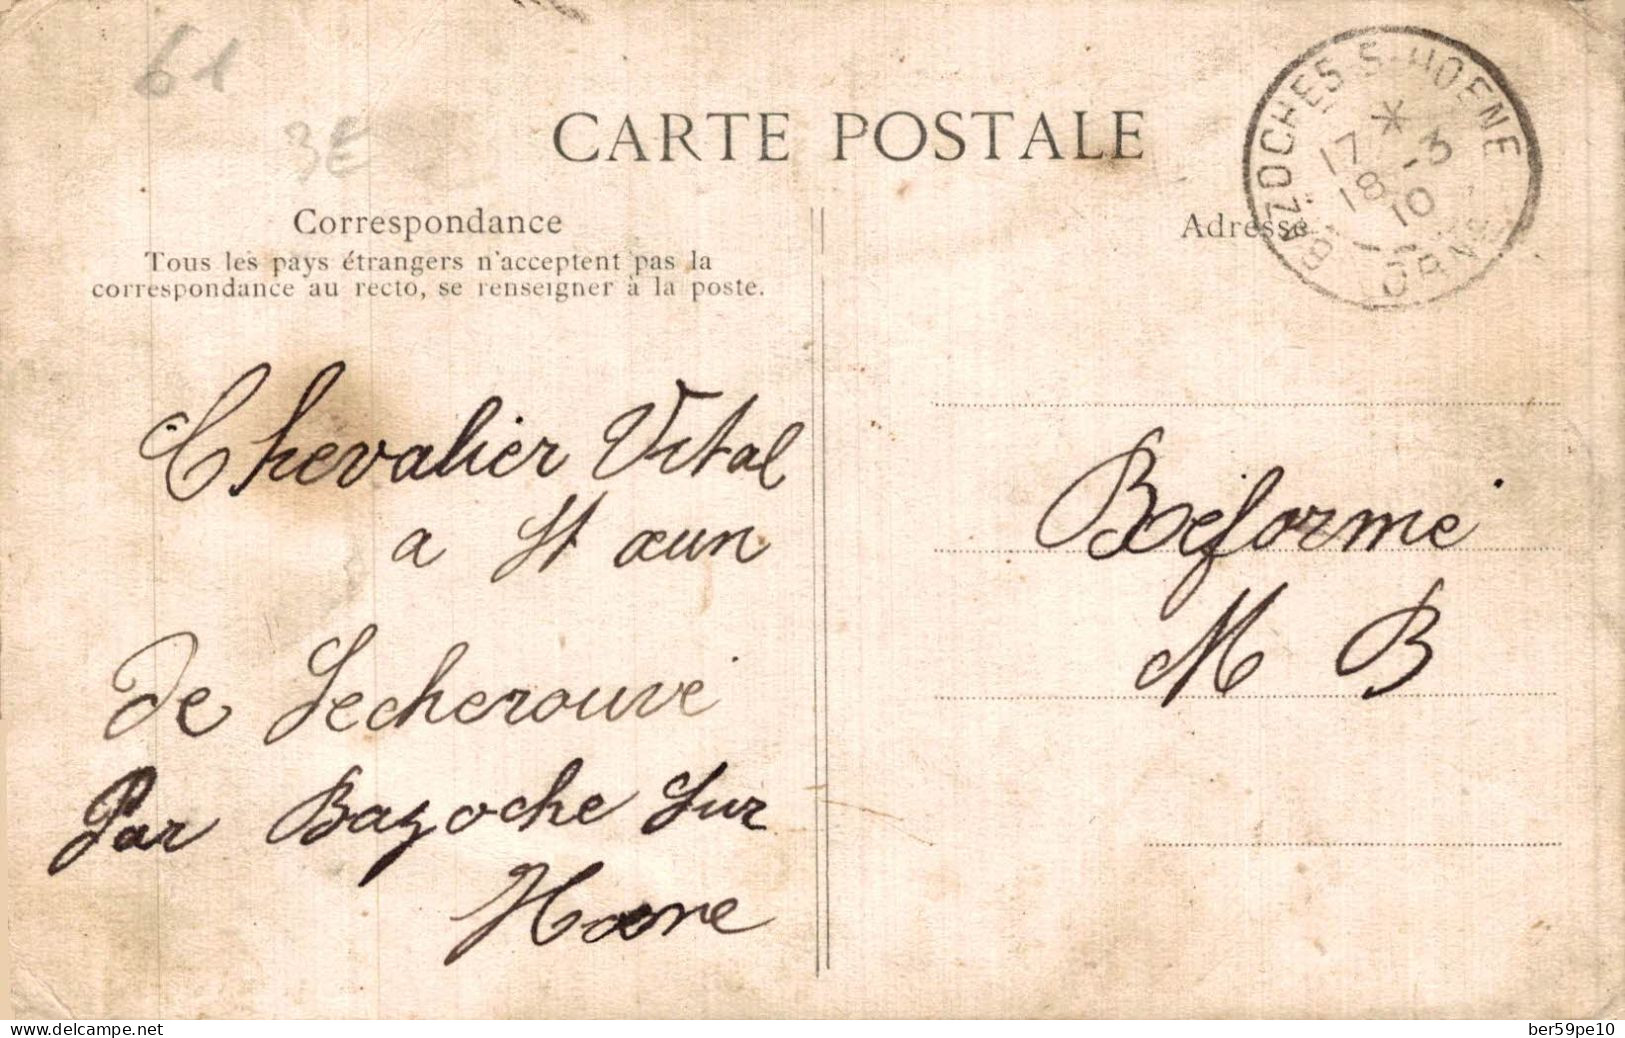 61
3E
CARTE POSTALE
Correspondance
Tous les pays étrangers n'acceptent pas la
correspondance au recto, se renseigner à la poste.
Adresse
BAZOCHES-S-HOENE
17 * -3
18 10
ORNE
Chevalier Vital
a St aun
de Secherouvé
Par Bazoche sur
Hoene
Reformé
M B
www.delcampe.net
ber59pe10